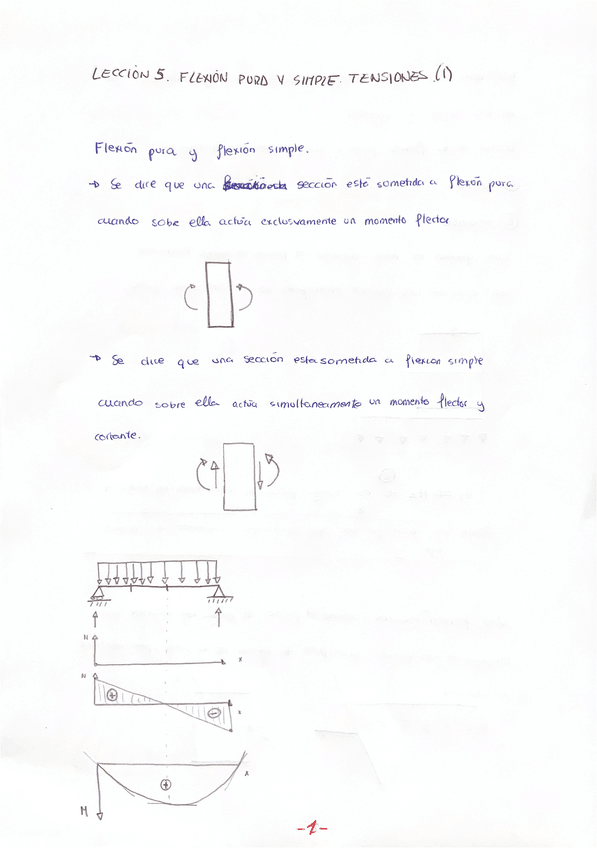 LECCIÓN 5. FLEXIÓN PURA Y SIMPLE. TENSIONES (1)
Flexión pura y flexión simple.
→ Se dice que una sección esté sometida a flexón pura
cuando sobe ella actúa exclusvamente un momento flector
→ Se dice que una sección esta sometida a flexion simple
cuando sobre ella actúa simultaneamente un momento flector y
cortante.
N
x
+
-
+
M
-1-